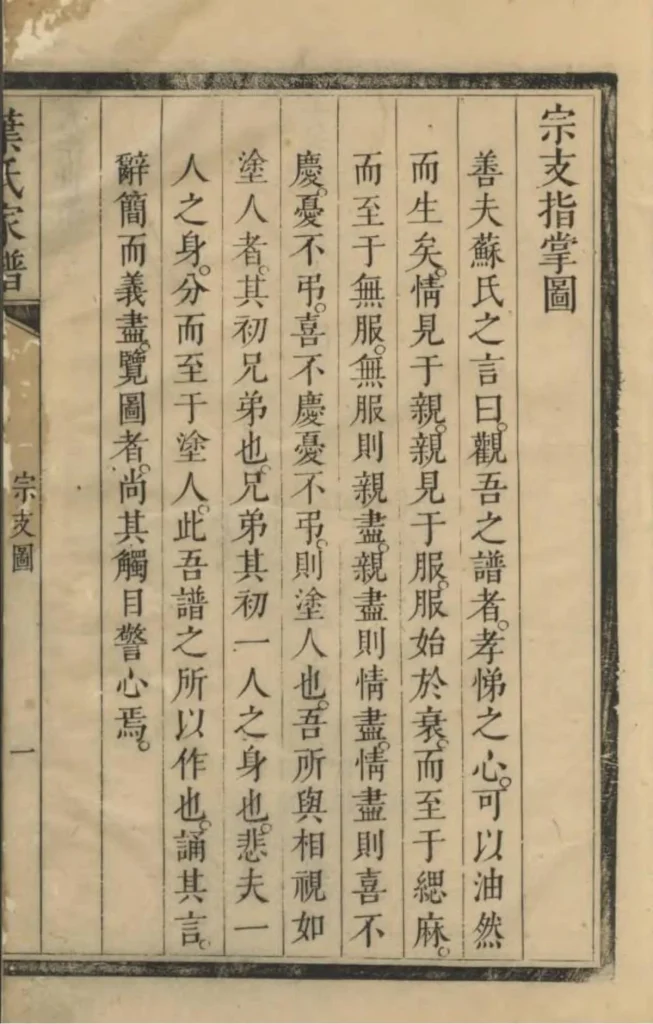 宗支指掌圖
善夫蘇氏之言曰。觀吾之譜者。孝悌之心。可以油然
而生矣。情見于親。親見于服。服始於衰。而至于緦麻。
而至于無服。無服則親盡。親盡則情盡。情盡則喜不
慶。憂不弔。喜不慶憂不弔。則塗人也。吾所與相視如
塗人者。其初兄弟也。兄弟其初一人之身也。悲夫一
人之身。分而至于塗人。此吾譜之所以作也。誦其言。
辭簡而義盡。覽圖者。尚其觸目警心焉。
葉氏家譜
宗支圖
一